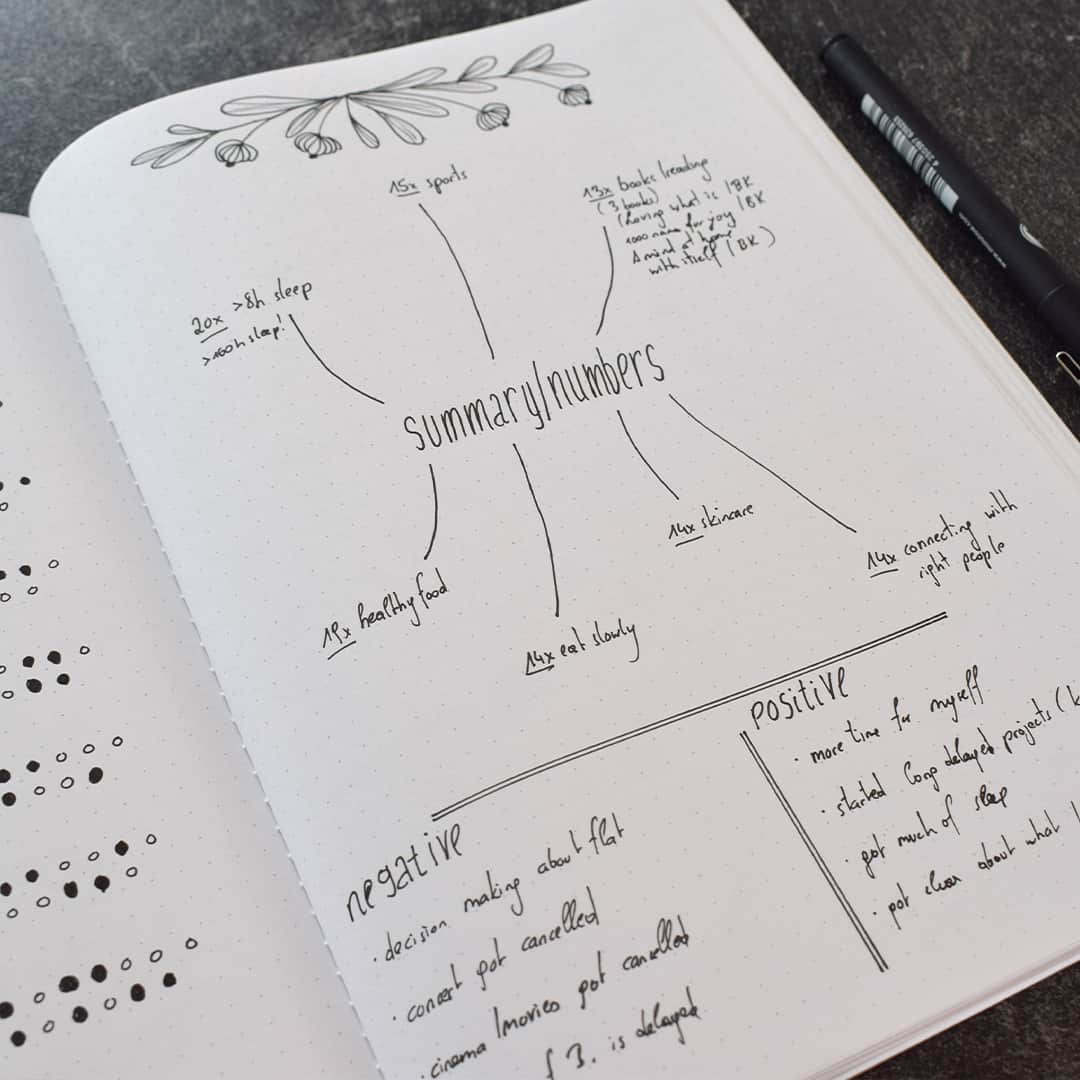 15x sports
13x books/reading
(3 books)
(Loving what is /BK
1000 names for joy /BK
A mind at home
with itself /BK)
20x >8h sleep
>100h sleep!
summary/numbers
14x skincare
14x connecting with
right people
19x healthy food
14x eat slowly
positive
· more time for myself
· started long delayed projects (
· got much of sleep
· got clear about what
negative
· decision making about flat
· concert got cancelled
· cinema/movies got cancelled
3. is delayed